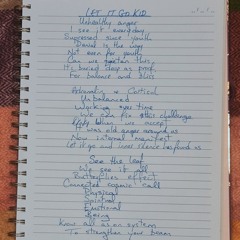 LET IT GO KID
Unhealthy anger
I see it everyday
Supressed since youth
Denial is the way
Not even for youth
Can we this
Its buried deep as proof
For balance and bliss
Adrenaline & Cortisol
Unbalanced
Working over time
We can fix this challenge
when we accept
was old anger around us
Now internal manifest
Let it go and inner silence has found us
See the leaf
We see it all
Butterflies effect
Connected cosmic call
Physical
Spiritual
Emotional
Being
Know as an system
To strengthen your beam